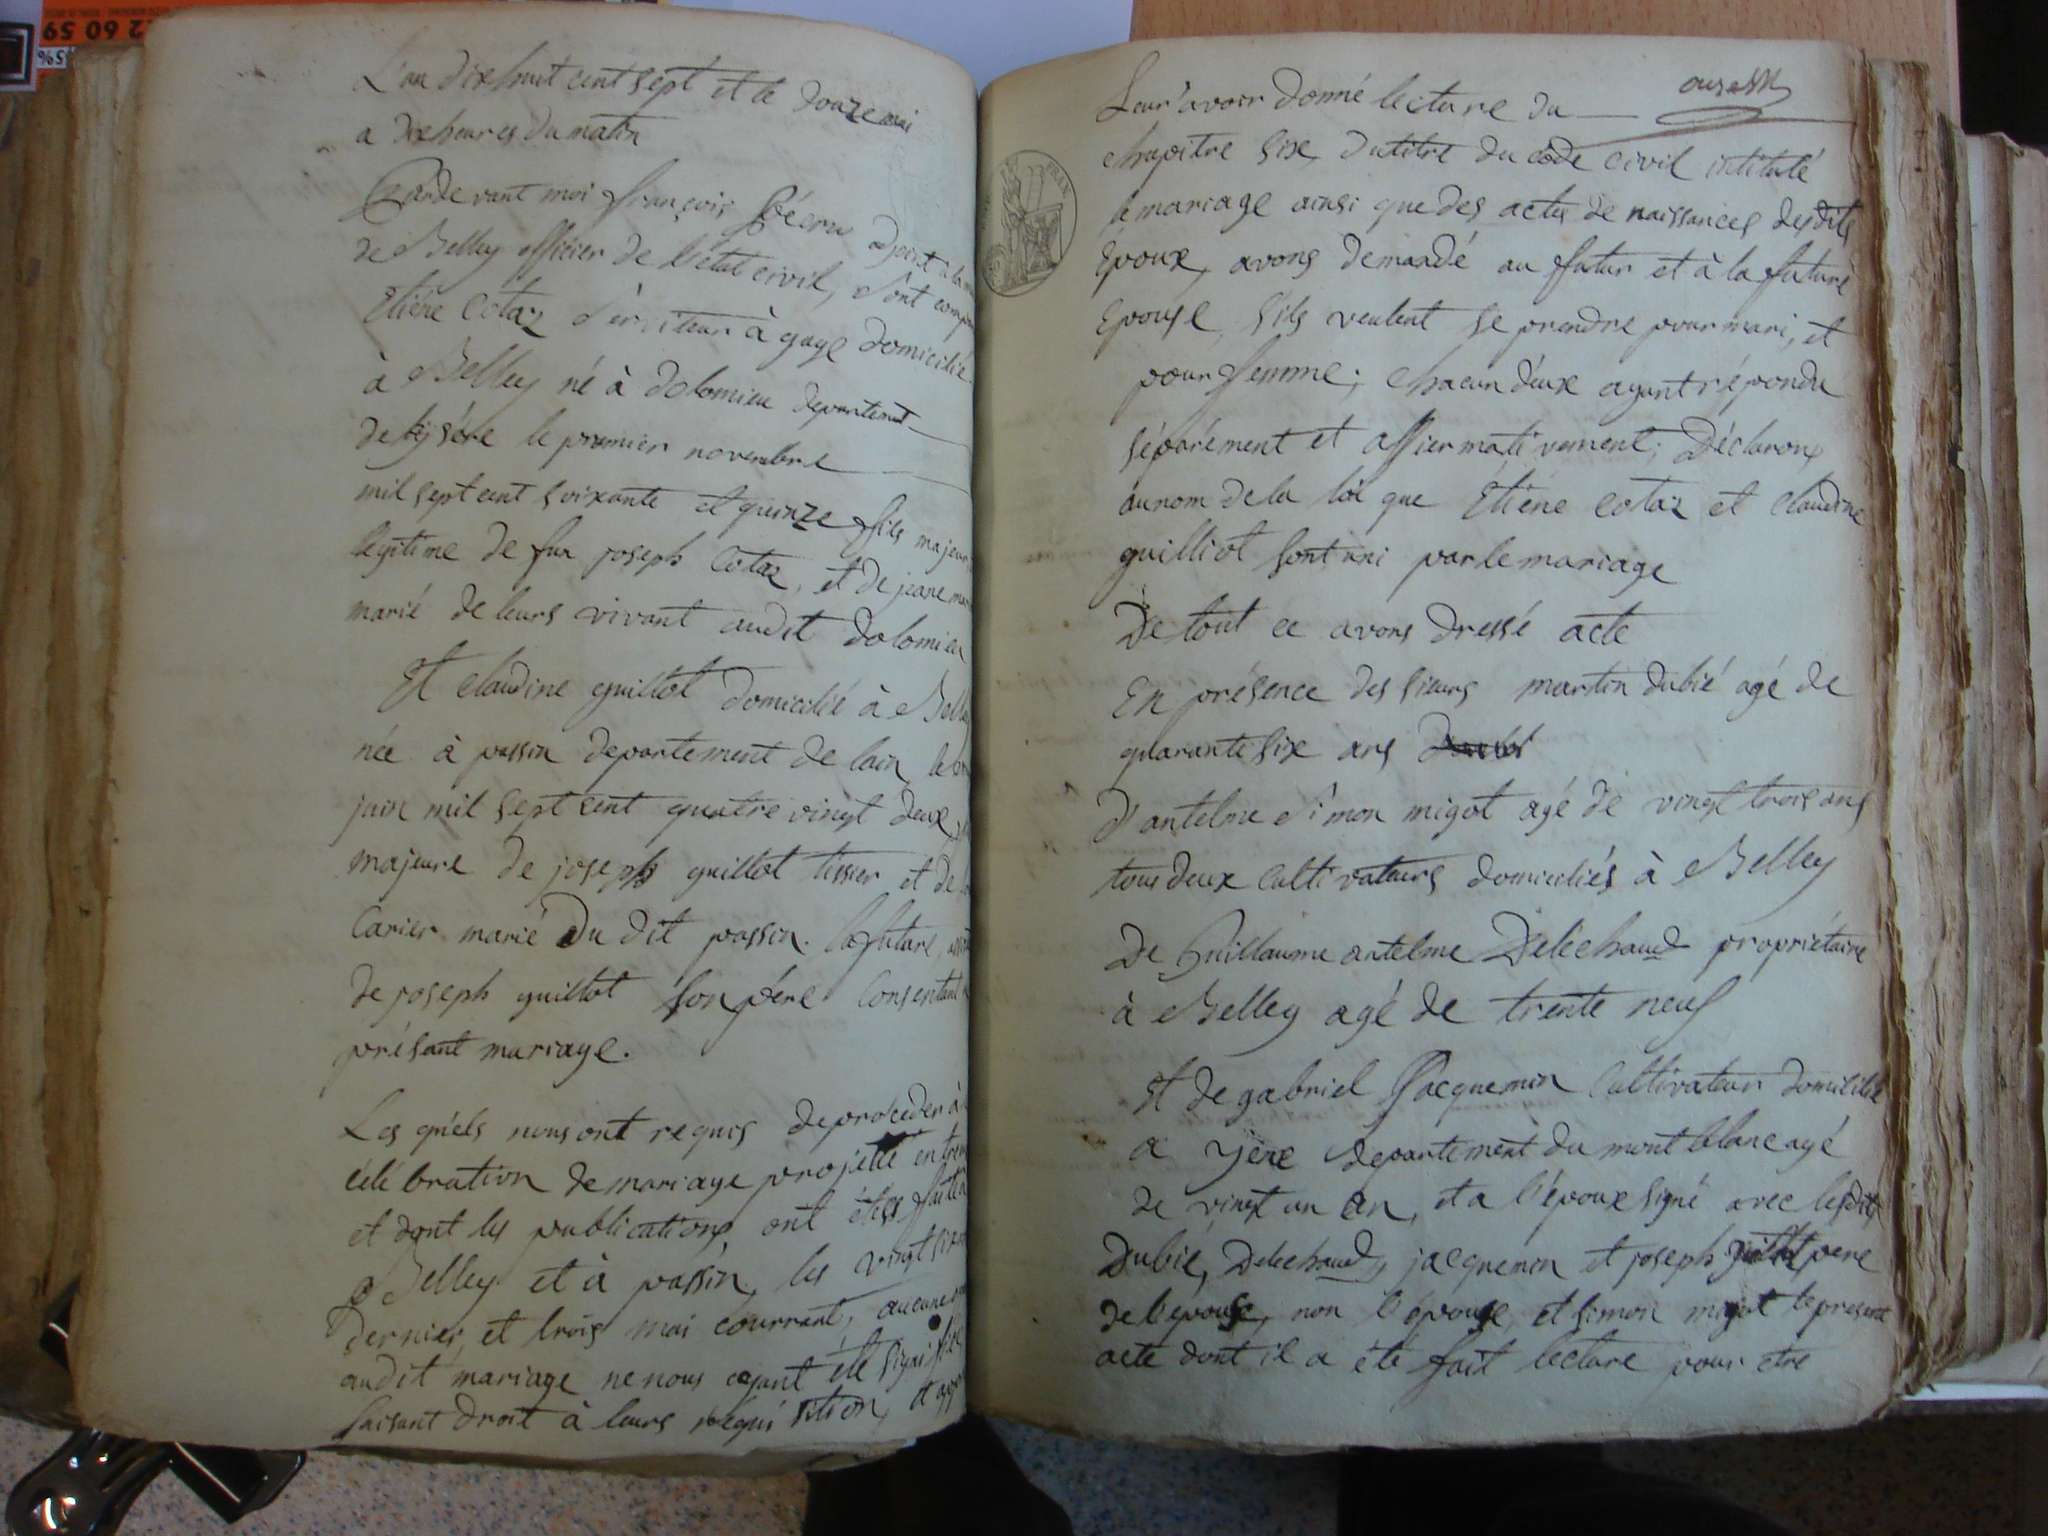 2 60 59
5%
L'an dix huit cent sept et le douze mai
a dix heures du matin
Pardevant moi françois adjoint à la
de Belley officier de l'état civil, sont comp
Etiéne Cotaz serviteur à gage domicilié
à Belley né à dolomieu departemt
de lysére le premier novembre
mil sept cent soixante et quinze fils majeur
légitime de fux joseph Cotaz, et de jeane
marié de leurs vivant audit dolomieu
Et Claudine guillot domicilié à Belley
née à passin departement de lain le
juin mil sept cent quatre vingt deux
majeure de joseph guillot tissier et de
Carier marié du dit passin. la future
de joseph guillot son pére Consentant
présant mariage.
Les quels nous ont requis de procéder à
célébration de mariage projetté entreu
et dont les publications ont étés faites
a Belley et à passin, les vingt six
dernier, et trois mai courrant, aucune
audit mariage ne nous ayant été signifiée
faisant droit à leurs réquisition, et apr
Leur avoir donné lecture du
chapitre six, du titre du code civil intitulé
le mariage ainsi que des actes de naissances desdits
Epoux, avons demandé au futur et à la future
Epouse, sils veulent se prendre pour mari, et
pour femme; chacun deux ayant répondu
séparément et affiermativement; Déclarons
au nom de la loi que Etiéne Cotaz et Claudine
guilliot sont uni par le mariage
De tout ce avons dressé acte
En présence des sieurs martin dubié agé de
quarante six ans
D'antelme Simon migot agé de vingt trois ans
tous deux Cultivateurs domiciliés à Belley
De Guillaume antelme Delechaud propriétaire
à Belley agé de trente neuf
Et de gabriel Jacquemin Cultivateur domicilié
a yère departement du mont blanc agé
de vingt un an, et a l'époux signé avec lesdits
Dubié, Delechaud, jacquemin et joseph guillot pere
de l'épouse, non l'épouse, et simon migot le present
acte dont il a été fait lecture pour etre